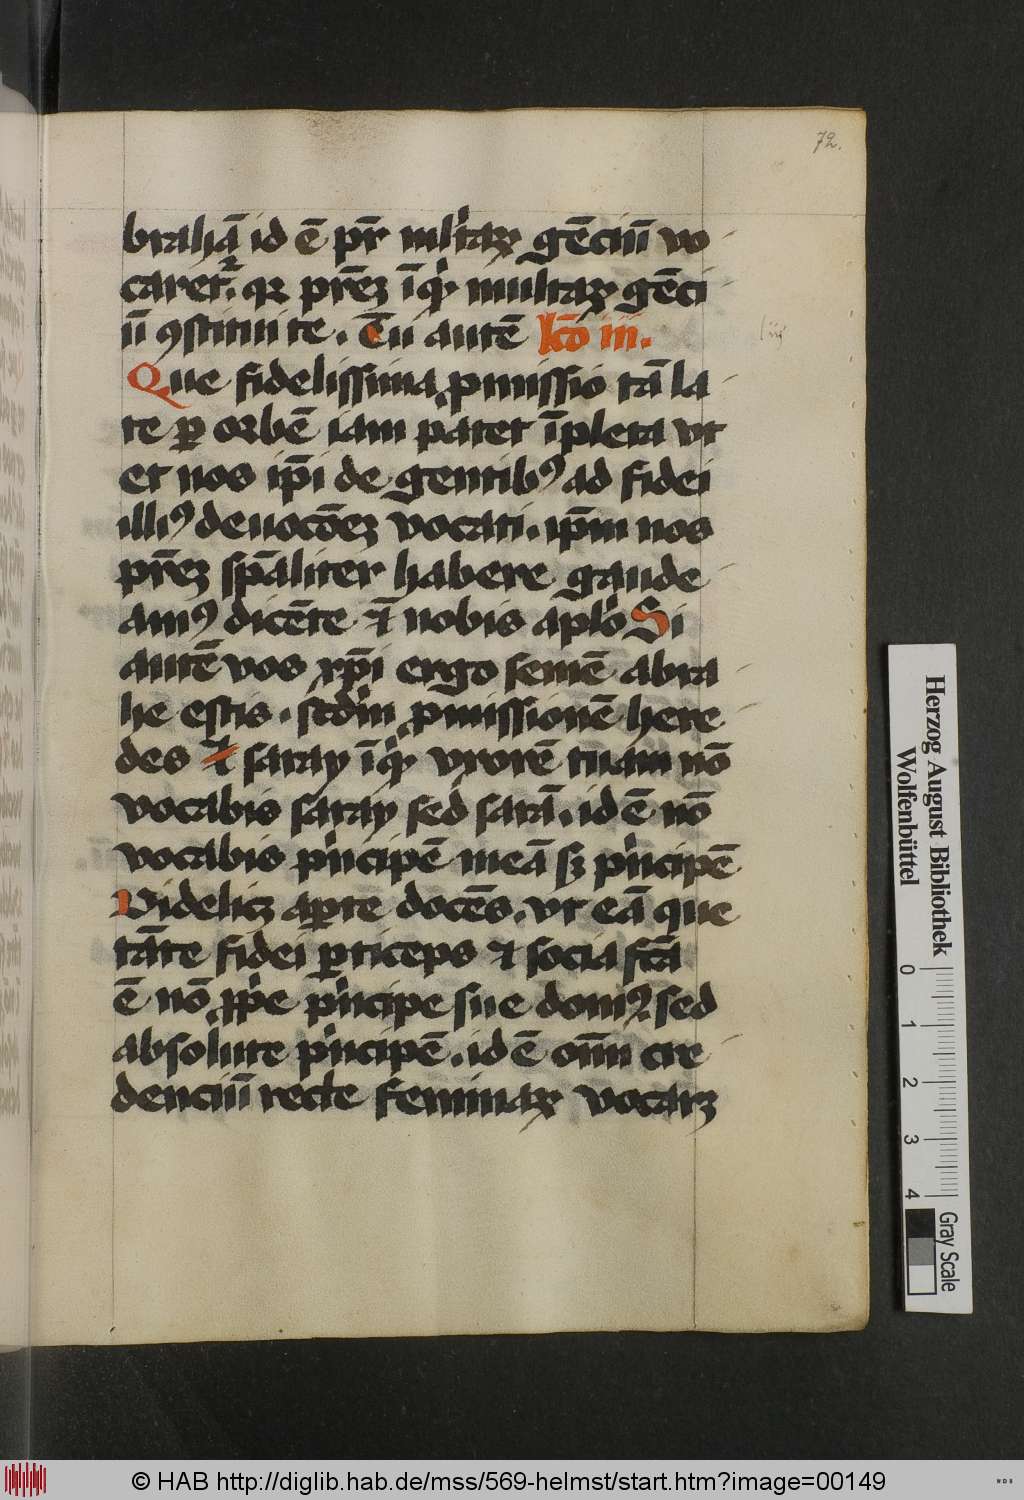 72.
brahā id ē pr̄ ml'taꝝ gēciū vo
caret᷑. qꝛ prēꝫ īq' multaꝝ gēci
ū ꝯstitui te. Tu autē lcō iii.
Que fidelissima ꝓmissio tā la
te ꝑ orbē iam patet īpleta vt
et nos ip̄i de gentibꝰ ad fidei
illiꝰ deuocōeꝫ vocati. ip̄m nos
prēꝫ sp̄aliter habere gaude
amꝰ dicēte ⁊ nobis aplo Si
autē vos xp̄i ergo semē abra
he estis. scd'm ꝓmissionē here
des ⁊ saray īq' vxorē tuam nō
vocabis saray sed sarā. id ē nō
vocabis p'ncipē meā sꝫ p'ncipē
Videlicꝫ aꝑte docēs. vt eā que
tāte fidei ꝑticeps ⁊ socia fc̄a
ē nō ꝓp'e p'ncipe sue domꝰ. sed
absolute p'ncipē. id ē oīm cre
denciū recte feminaꝝ vocarꝫ
Herzog August Bibliothek
Wolfenbüttel
0 1 2 3 4
Gray Scale
© HAB http://diglib.hab.de/mss/569-helmst/start.htm?image=00149